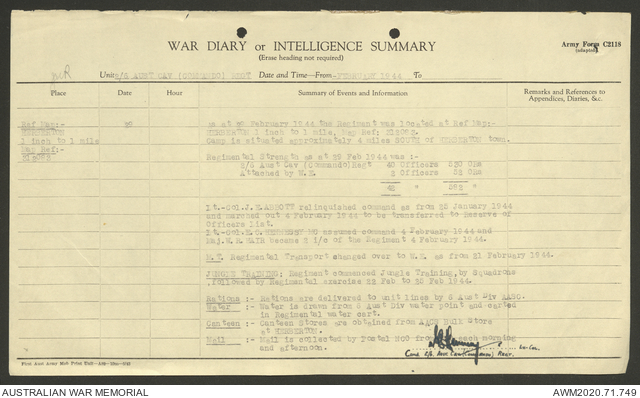 WAR DIARY or INTELLIGENCE SUMMARY
(Erase heading not required)
Army Form C2118
(adapted)
Unit 2/6 AUST CAV (COMMANDO) REGT Date and Time—From FEBRUARY 1944 To
Place Date Hour Summary of Events and Information Remarks and References to
Appendices, Diaries, &c.
Ref Map:- 29 As at 29 February 1944 the Regiment was located at Ref Map:-
HERBERTON HERBERTON 1 inch to 1 mile, Map Ref:
1 inch to 1 mile Camp is situated approximately 4 miles SOUTH of HERBERTON town.
Map Ref:-
Regimental Strength as at 29 Feb 1944 was :-
2/6 Aust Cav (Commando) Regt 40 Officers 530 ORs
Attached by W.E. 2 Officers 52 ORs
42 " 582 "
Lt.-Col. J.E. ABBOTT relinquished command as from 25 January 1944
and marched out 4 February 1944 to be transferred to Reserve of
Officers List.
Lt.-Col. E.C. HENNESSY MC assumed command 4 February 1944 and
Maj. became 2 i/c of the Regiment 4 February 1944.
M.T. Regimental Transport changed over to W.E. as from 21 February 1944.
JUNGLE TRAINING: Regiment commenced Jungle Training, by Squadrons
,followed by Regimental exercise 22 Feb to Feb 1944.
Rations :- Rations are delivered to unit lines by 6 Aust Div AASC.
Water :- Water is drawn from 6 Aust Div water point and carted
in Regimental water cart.
Canteen :- Canteen Stores are obtained from AACS Bulk Store
at HERBERTON.
Mail :- Mail is collected by Postal NCO from each morning
and afternoon.
Lt-Col.
Comd 2/6 Aust Cav (Commando) Regt.
AUSTRALIAN WAR MEMORIAL
AWM2020.71.749